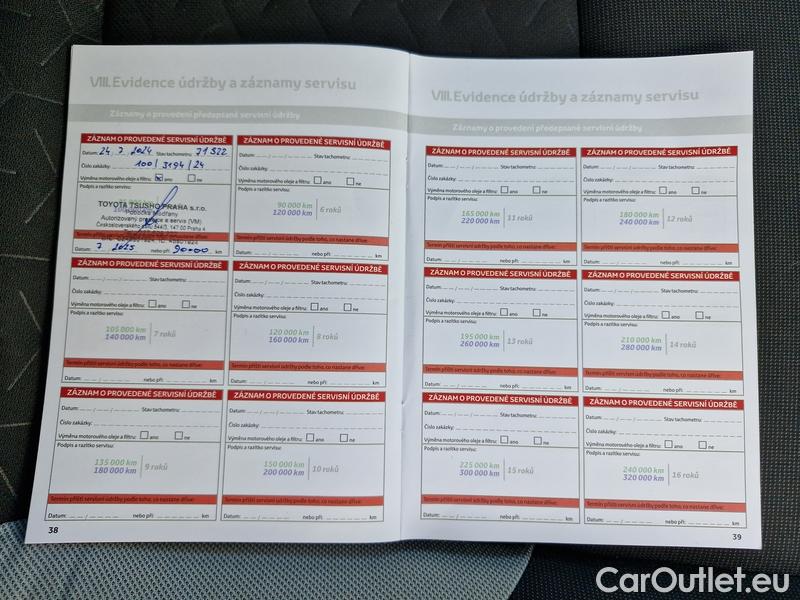 VIII. Evidence údržby a záznamy servisu
Záznamy o provedení předepsané servisní údržby
ZÁZNAM O PROVEDENÉ SERVISNÍ ÚDRŽBĚ
Datum: 24. 7. 2024 Stav tachometru: 71522
Číslo zakázky: 100/3194/24
Výměna motorového oleje a filtru: ano ne
Podpis a razítko servisu:
TOYOTA TSUSHO PRAHA s.r.o.
Pobočka Modřany
Autorizovaný prodejce a servis (VM)
Termín příští servisní údržby podle toho, co nastane dříve:
Datum: 7. 2025 nebo při: 90000 km
ZÁZNAM O PROVEDENÉ SERVISNÍ ÚDRŽBĚ
Datum: Stav tachometru:
Číslo zakázky:
Výměna motorového oleje a filtru: ano ne
Podpis a razítko servisu:
90 000 km
120 000 km
6 roků
Termín příští servisní údržby podle toho, co nastane dříve:
Datum: nebo při: km
ZÁZNAM O PROVEDENÉ SERVISNÍ ÚDRŽBĚ
Datum: Stav tachometru:
Číslo zakázky:
Výměna motorového oleje a filtru: ano ne
Podpis a razítko servisu:
105 000 km
140 000 km
7 roků
Termín příští servisní údržby podle toho, co nastane dříve:
Datum: nebo při: km
ZÁZNAM O PROVEDENÉ SERVISNÍ ÚDRŽBĚ
Datum: Stav tachometru:
Číslo zakázky:
Výměna motorového oleje a filtru: ano ne
Podpis a razítko servisu:
120 000 km
160 000 km
8 roků
Termín příští servisní údržby podle toho, co nastane dříve:
Datum: nebo při: km
ZÁZNAM O PROVEDENÉ SERVISNÍ ÚDRŽBĚ
Datum: Stav tachometru:
Číslo zakázky:
Výměna motorového oleje a filtru: ano ne
Podpis a razítko servisu:
135 000 km
180 000 km
9 roků
Termín příští servisní údržby podle toho, co nastane dříve:
Datum: nebo při: km
ZÁZNAM O PROVEDENÉ SERVISNÍ ÚDRŽBĚ
Datum: Stav tachometru:
Číslo zakázky:
Výměna motorového oleje a filtru: ano ne
Podpis a razítko servisu:
150 000 km
200 000 km
10 roků
Termín příští servisní údržby podle toho, co nastane dříve:
Datum: nebo při: km
38
VIII. Evidence údržby a záznamy servisu
Záznamy o provedení předepsané servisní údržby
ZÁZNAM O PROVEDENÉ SERVISNÍ ÚDRŽBĚ
Datum: Stav tachometru:
Číslo zakázky:
Výměna motorového oleje a filtru: ano ne
Podpis a razítko servisu:
165 000 km
220 000 km
11 roků
Termín příští servisní údržby podle toho, co nastane dříve:
Datum: nebo při: km
ZÁZNAM O PROVEDENÉ SERVISNÍ ÚDRŽBĚ
Datum: Stav tachometru:
Číslo zakázky:
Výměna motorového oleje a filtru: ano ne
Podpis a razítko servisu:
180 000 km
240 000 km
12 roků
Termín příští servisní údržby podle toho, co nastane dříve:
Datum: nebo při: km
ZÁZNAM O PROVEDENÉ SERVISNÍ ÚDRŽBĚ
Datum: Stav tachometru:
Číslo zakázky:
Výměna motorového oleje a filtru: ano ne
Podpis a razítko servisu:
195 000 km
260 000 km
13 roků
Termín příští servisní údržby podle toho, co nastane dříve:
Datum: nebo při: km
ZÁZNAM O PROVEDENÉ SERVISNÍ ÚDRŽBĚ
Datum: Stav tachometru:
Číslo zakázky:
Výměna motorového oleje a filtru: ano ne
Podpis a razítko servisu:
210 000 km
280 000 km
14 roků
Termín příští servisní údržby podle toho, co nastane dříve:
Datum: nebo při: km
ZÁZNAM O PROVEDENÉ SERVISNÍ ÚDRŽBĚ
Datum: Stav tachometru:
Číslo zakázky:
Výměna motorového oleje a filtru: ano ne
Podpis a razítko servisu:
225 000 km
300 000 km
15 roků
Termín příští servisní údržby podle toho, co nastane dříve:
Datum: nebo při: km
ZÁZNAM O PROVEDENÉ SERVISNÍ ÚDRŽBĚ
Datum: Stav tachometru:
Číslo zakázky:
Výměna motorového oleje a filtru: ano ne
Podpis a razítko servisu:
240 000 km
320 000 km
16 roků
Termín příští servisní údržby podle toho, co nastane dříve:
Datum: nebo při: km
39
CarOutlet.eu